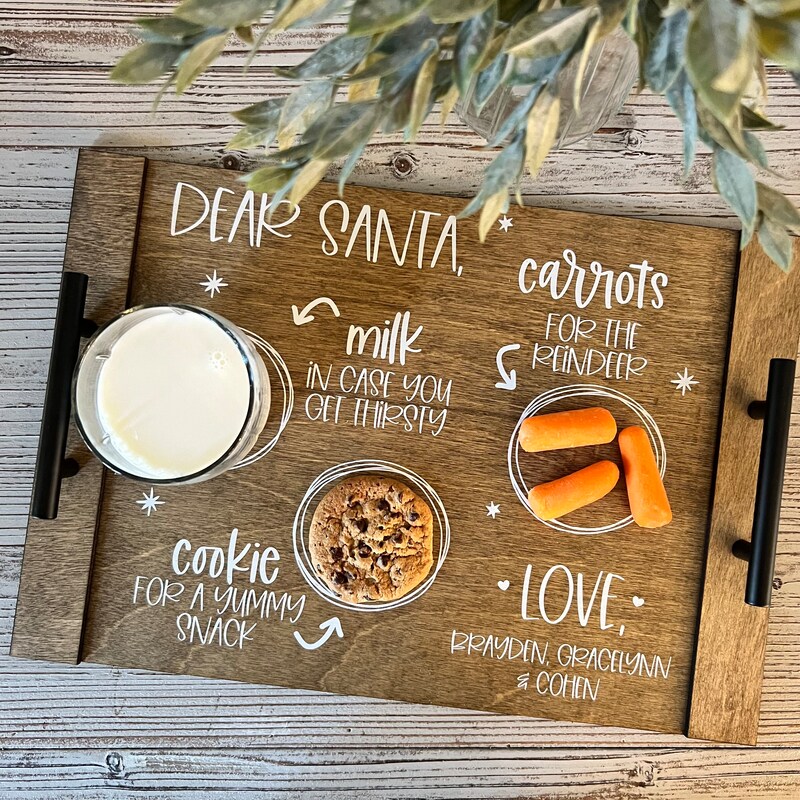 DEAR SANTA,
milk
IN CASE YOU
GET THIRSTY
carrots
FOR THE
REINDEER
cookie
FOR A YUMMY
SNACK
LOVE,
BRAYDEN, GRACELYNN
& COHEN